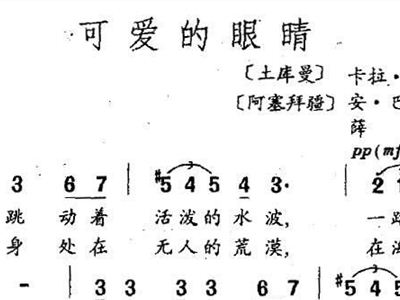 可爱的眼睛
〔土库曼〕 卡拉·
〔阿塞拜疆〕 安·巴
薛
pp(mf
3 6 7 | #5 4 5 4 3· | 2
跳 动着 活泼的水波, 一
身 处在 无人的荒漠, 在
- | 3 3 3 3 3 6 7 | #5 4 5